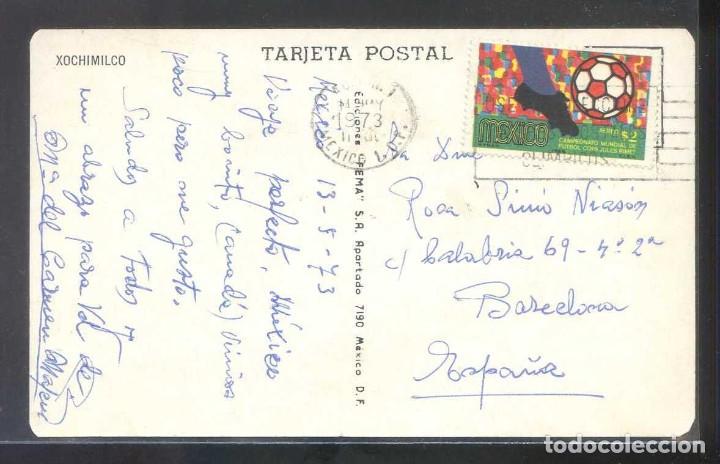 XOCHIMILCO
TARJETA POSTAL
Mexico 13-5-73
Viaje perfecto, México
muy bonito, (Canadá) vimos
poco pero me gusto.
Saludos a Todos y
un abrazo para Vd de
Mª del Carmen
Ediciones "FEMA" S.A. Apartado 7190 México D.F.
1973
MEXICO 1, D.F.
MEXICO
AEREO $2
CAMPEONATO MUNDIAL DE
FUTBOL COPA JULES RIMET
Rosa
c/ Calabria 69-4º 2ª
Barcelona
España
todocoleccion